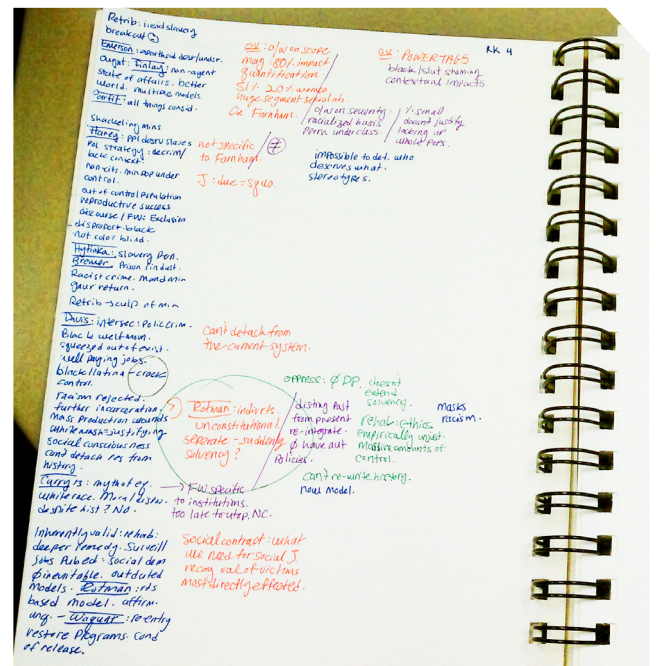 Retrib: inoid slavery
breakout
Emerson: apartheid
ought. Finlay: non-agent
state of affairs. better
world. multiple models
Parfit: all things consid.
Shackeling mins
Haney: ppl desrv slaves
pol strategy: decrim/
lack connect
non-citz. min pop under
control.
out of control population
reproductive success
discourse/FW: Exclusion
disproport. black
not color blind.
slavery Pun.
Brewer Prison indust.
Racist crime. Mand min
gaur return.
Retrib → sculp of min
Davis: intersec: polic crim.
Black welf mom.
squeezed out of exist.
well paying jobs.
black/latina - crack
control.
racism rejected.
further incarceration
Mass Production wounds
whitewash-justifying
social consciousness
cant detach res from
history.
Curry 13: myth of
white race. Moral
despite hist? No.
Inherently valid: rehab:
deeper remedy. Surveill
jobs Pub ed: social dem
Ø inevitable. outdated
models. Rotman: rts
based model. affirm.
ung. - Waquat: re-entry
restore Programs. Cond
of release.
OV: o/w on scope
mag: 80% impact
quantification
51% 20% women
huge segment
Ov Farnham.
not specific
to Farnham.
J: due = squo.
o/w on severity
racialized basis
perm underclass
% small
doesn't justify
locking up
whole Pers.
impossible to det. who
deserves what.
stereotypes.
OV: POWER TAGS
black/slut shaming
contextual impacts
RK 4
can't detach from
the current system.
Rotman: indiv rts.
unconstitutional.
seperate - suddenly
solvency?
oppress: Ø DP. doesn't
extend
solvency.
disting Past
from present
re-integrate.
Ø have aut
Policies.
rehab: ethics
empirically unjust.
Massive amounts of
control.
masks
racism.
can't re-write history.
new model.
→ FW specific
to institutions.
too late to utop. NC.
Social contract: what
we need for social J
recog val of victims
most directly effected.